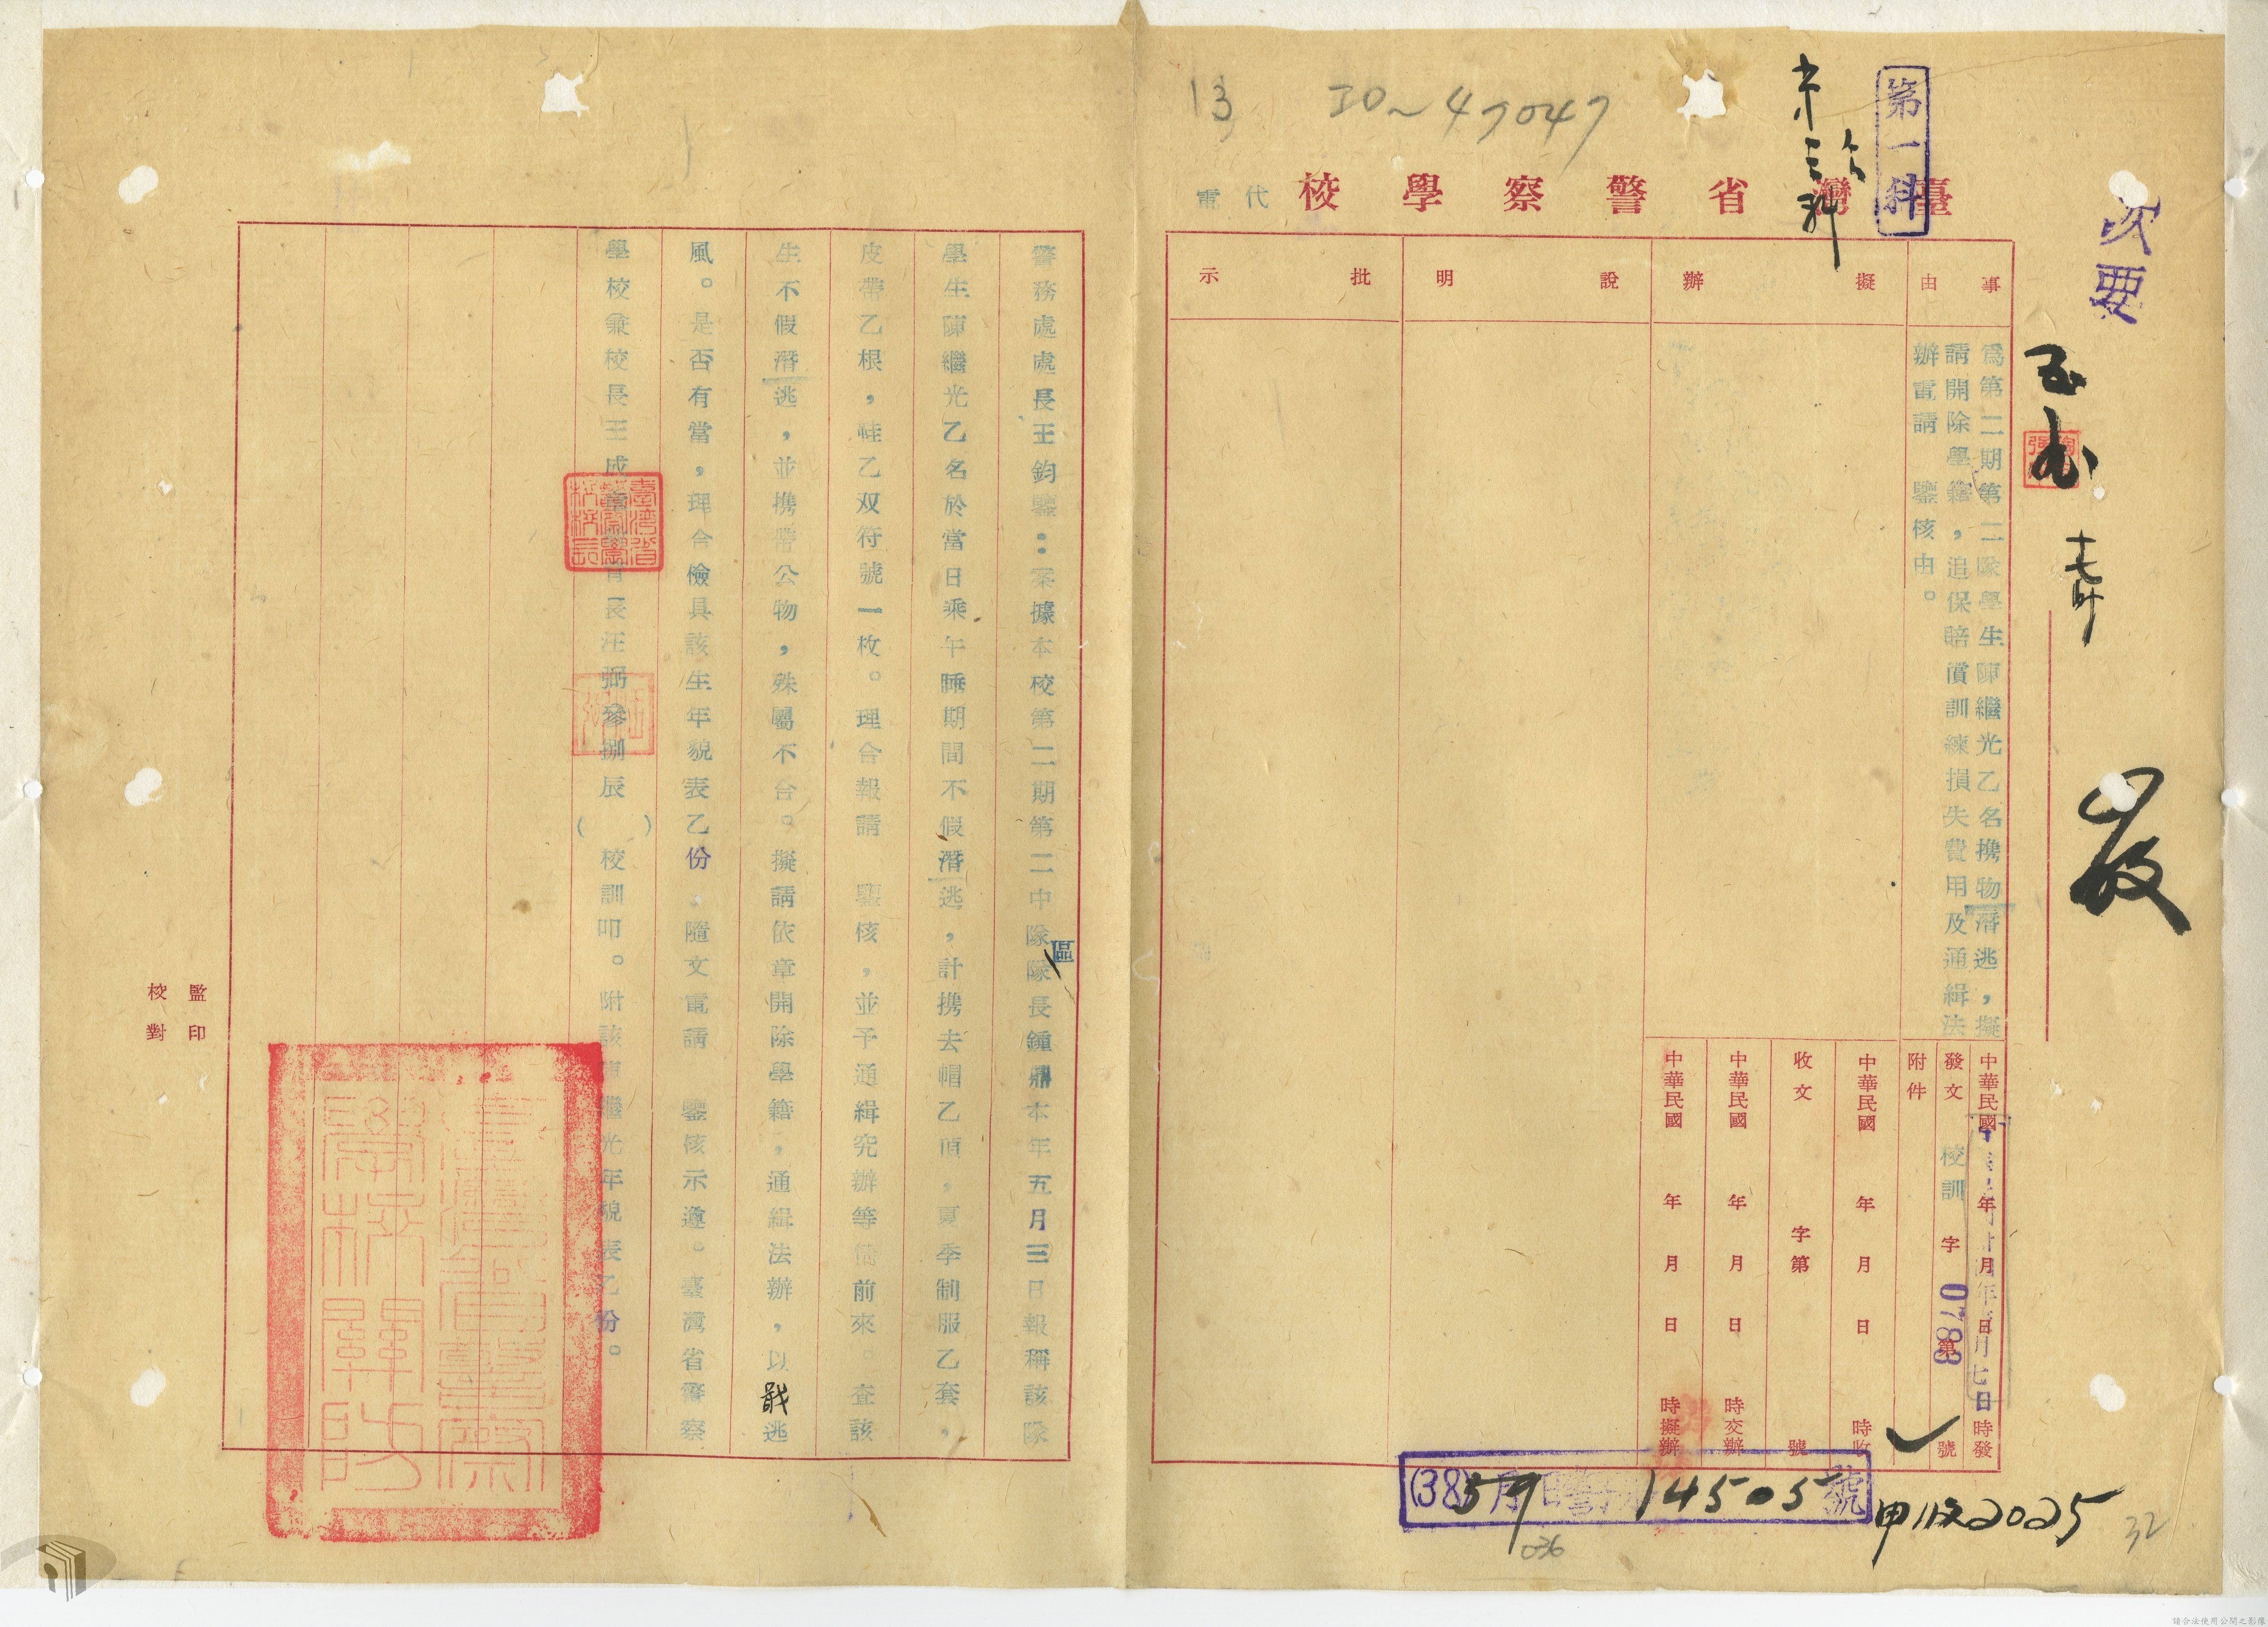 13 IO~47047
第一科
次要
臺灣省警察學校
代電
事由
擬辦
說明
批示
為第二期第二隊學生陳繼光乙名携物潛逃,擬
請開除學籍,追保賠償訓練損失費用及通緝法
辦電請 鑒核由。
中華民國 年 月 日 時發
發文 校訓 字 第 0788 號
附件
中華民國 年 月 日 時收
收文 字第 號
中華民國 年 月 日 時交辦
中華民國 年 月 日 時擬辦
(38) 5月9日 14505 號
甲 2025
32
036
警務處處長王鈞鑒:案據本校第二期第二中隊區隊長鍾鼎本年五月三日報稱該隊
學生陳繼光乙名於當日乘午睡期間不假潛逃,計携去帽乙頂,夏季制服乙套,
皮帶乙根,鞋乙双符號一枚。理合報請 鑒核,並予通緝究辦等情前來。查該
生不假潛逃,並携帶公物,殊屬不合。擬請依章開除學籍,通緝法辦,以戢逃
風。是否有當,理合儉具該生年貌表乙份,隨文電請 鑒核示遵。臺灣省警察
學校兼校長王成章教育長汪弼參捌辰( )校訓叩。附該陳繼光年貌表乙份。
臺灣省警察學校校長
臺灣省警察學校關防
監印
校對
請合法使用公開之影像